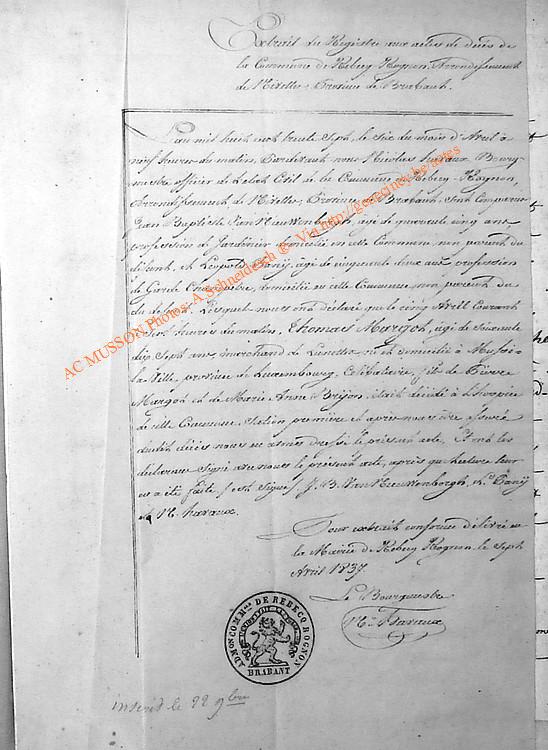 Extrait du Registre aux actes de décès de
la Commune de Rebecq Rognon, Arrondissement
de Nivelles, Province de Brabant.
L'an mil huit cent trente Sept, le Six du mois d'Avril à
neuf heures du matin, Pardevant nous Nicolas havaux Bourg-
mestre officier de l'état Civil de la Commune de Rebecq-Rognon,
Arrondissement de Nivelles, Province de Brabant, sont comparus
Jean Baptiste Van Nieuwenborgh, agé de quarante cinq ans
profession de Jardinier domicilié en cette Commune, non parent du
défunt, et Léopold Paniÿ, agé de cinquante deux ans profession
de Garde Champêtre, domicilié en cette Commune, non parent du
du défunt, Lesquels nous ont déclaré que le cinq Avril Courant
à sept heures du matin, Thomas Margot, agé de Soixante
dix Sept ans, marchand de Lunettes, né et domicilié à Mussi-
la Ville, province de Luxembourg, Célibataire, fils de Pierre
Margot et de Marie Anne Brijon, était décédé à l'hospice
de cette Commune, Section première et après nous être assuré
dudit décès nous en avons dressé le présent acte, Et ont les
déclarans Signé avec nous le présent acte, après que lecture leur
en a été faite, (est Signé) J. B. Van Nieuwenborgh, Ld. Paniÿ
et N. havaux.
Pour extrait conforme délivré en
la Mairie de Rebecq Rognon le Sept
Avril 1837.
Le Bourgmestre
Ns. Havaux
ADMon COMMale DE REBECQ ROGNON
BRABANT
inscrit le 22 9bre
AC MUSSON Photos: A Schneidesch ® Via http://geneciney.be/actes